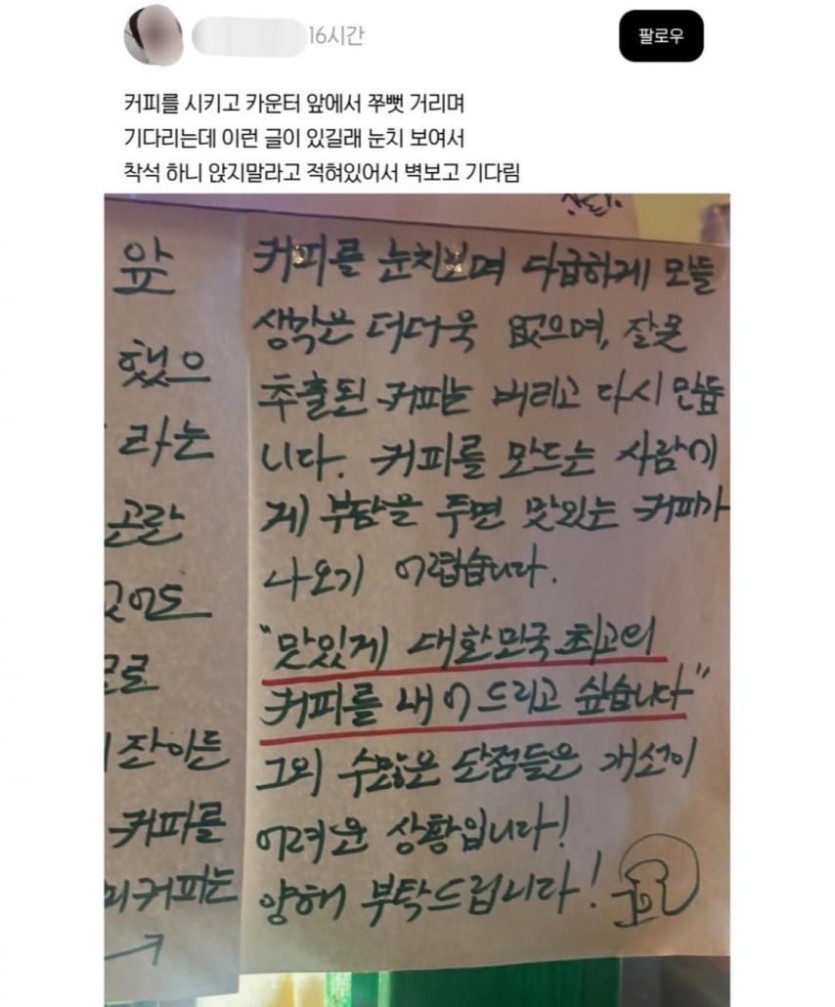 16시간
팔로우
커피를 시키고 카운터 앞에서 쭈뻣 거리며
기다리는데 이런 글이 있길래 눈치 보여서
착석 하니 앉지말라고 적혀있어서 벽보고 기다림
앞
했으
라는
곤란
잔이든
커피를
커피는
커피를 눈치보며 다급하게 만들
생각은 더더욱 없으며, 잘못
추출된 커피는 버리고 다시 만듭
니다. 커피를 만드는 사람에
게 부담을 주면 맛있는 커피가
나오기 어렵습니다.
"맛있게 대한민국 최고의
커피를 내어 드리고 싶습니다"
그외 수많은 단점들은 개선이
어려운 상황입니다!
양해 부탁드립니다!